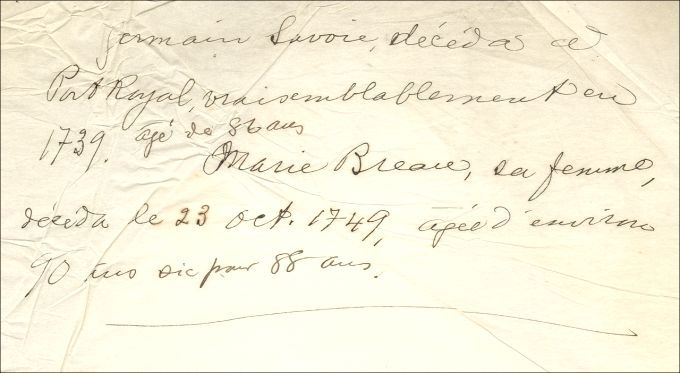 Germain Savoie, décéda à
Port Royal, vraisemblablement en
1739. agé de 86 ans
Marie Breau, sa femme,
décéda le 23 Oct. 1749, agée d'environ
90 ans sic pour 88 ans.